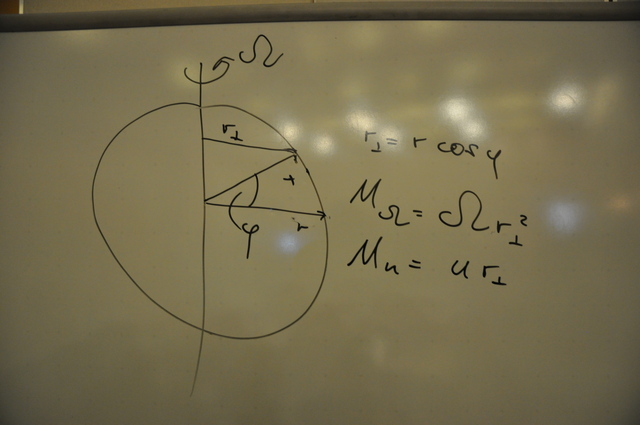 Ω
r⊥
r
φ
r
r⊥ = r cos φ
M_Ω = Ω r⊥²
M_u = u r⊥